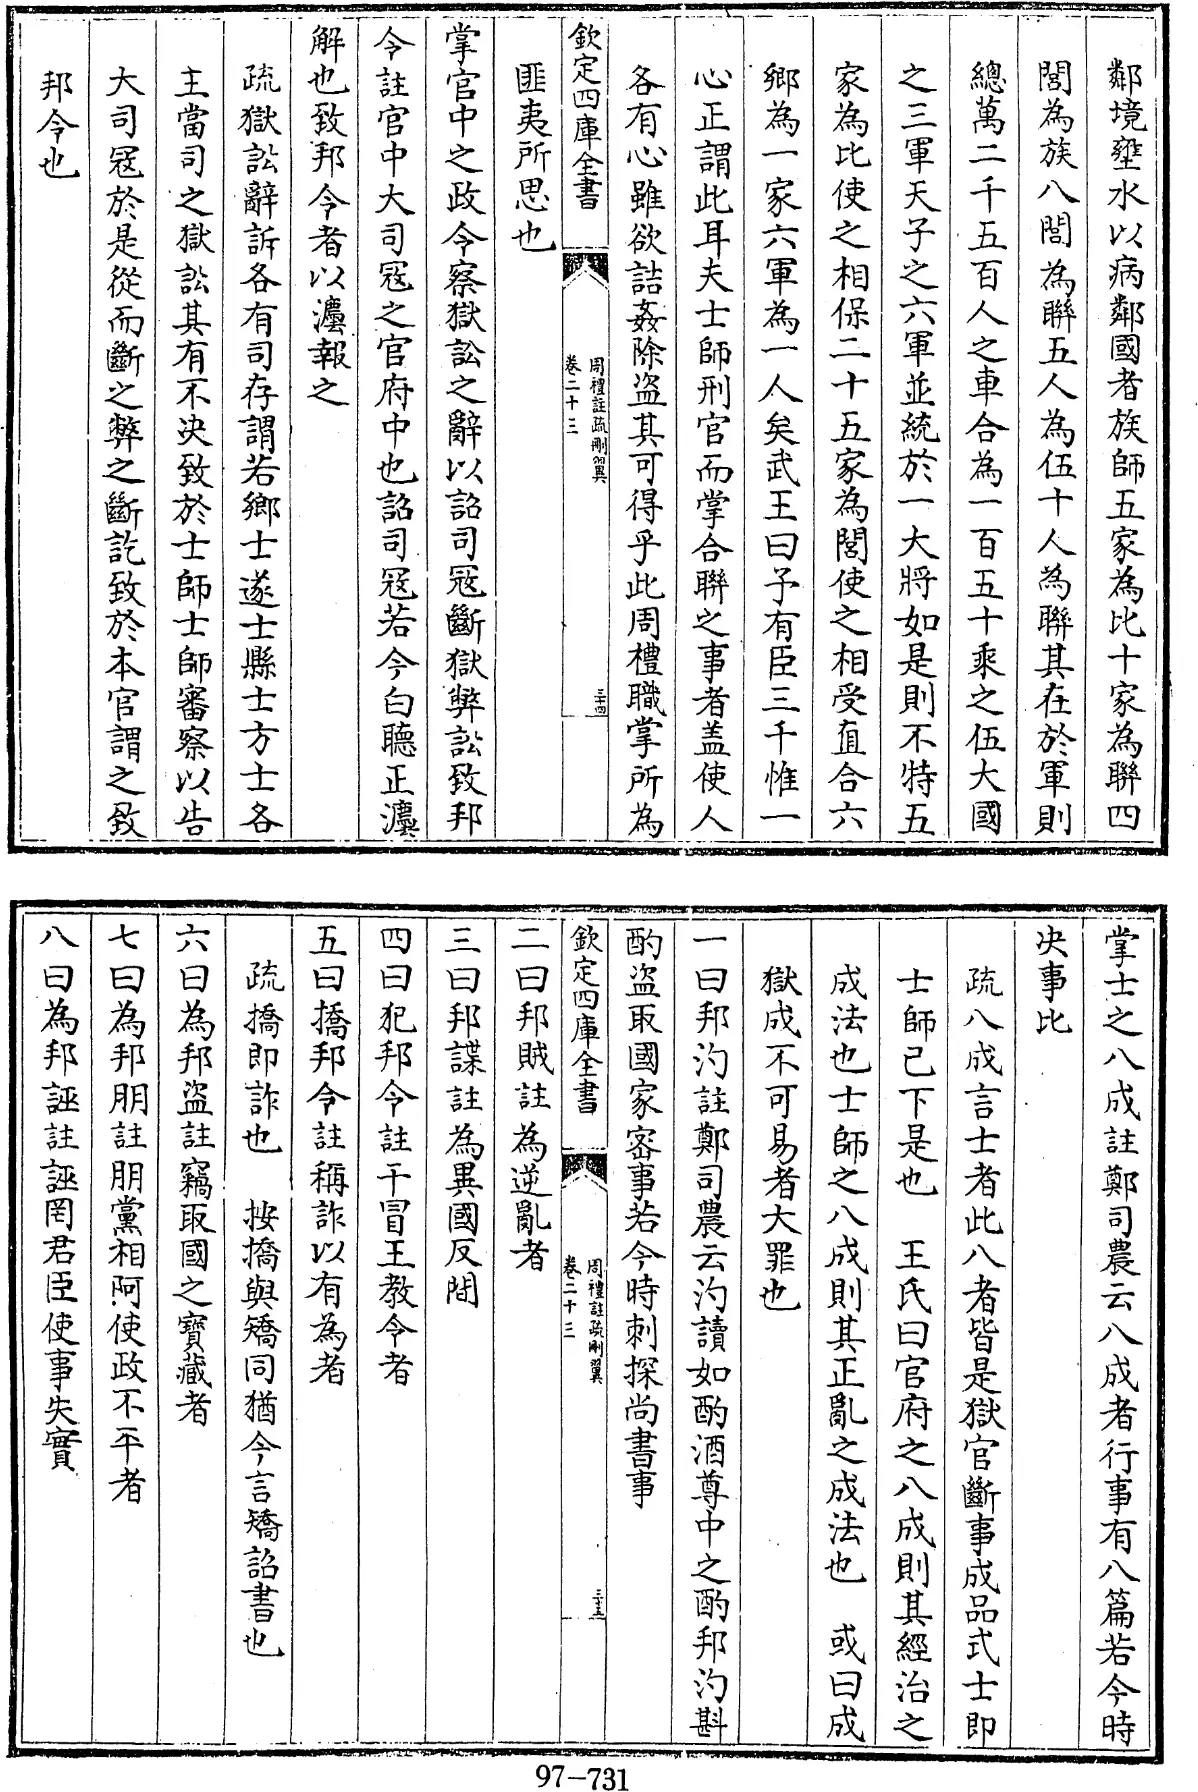 鄰境壅水以病鄰國者族師五家為比十家為聯四
閭為族八閭為聯五人為伍十人為聯其在於軍則
總萬二千五百人之車合為一百五十乘之伍大國
之三軍天子之六軍並統於一大將如是則不特五
家為比使之相保二十五家為閭使之相受直合六
鄉為一家六軍為一人矣武王曰予有臣三千惟一
心正謂此耳夫士師刑官而掌合聯之事者盖使人
各有心雖欲詰姦除盜其可得乎此周禮職掌所為
欽定四庫全書
周禮註疏刪翼
卷二十三
三十四
匪夷所思也
掌官中之政令察獄訟之辭以詔司寇斷獄弊訟致邦
令註官中大司寇之官府中也詔司寇若今白聽正灋
解也致邦令者以灋報之
疏獄訟辭訴各有司存謂若鄉士遂士縣士方士各
主當司之獄訟其有不决致於士師士師審察以告
大司寇於是從而斷之弊之斷訖致於本官謂之致
邦令也
掌士之八成註鄭司農云八成者行事有八篇若今時
决事比
疏八成言士者此八者皆是獄官斷事成品式士即
士師已下是也　王氏曰官府之八成則其經治之
成法也士師之八成則其正亂之成法也　或曰成
獄成不可易者大罪也
一曰邦汋註鄭司農云汋讀如酌酒尊中之酌邦汋斟
酌盜取國家密事若今時刺探尚書事
欽定四庫全書
周禮註疏刪翼
卷二十三
三十五
二曰邦賊註為逆亂者
三曰邦諜註為異國反間
四曰犯邦令註干冒王教令者
五曰撟邦令註稱詐以有為者
疏撟即詐也　按撟與矯同猶今言矯詔書也
六曰為邦盜註竊取國之寶藏者
七曰為邦朋註朋黨相阿使政不平者
八曰為邦誣註誣罔君臣使事失實
97-731